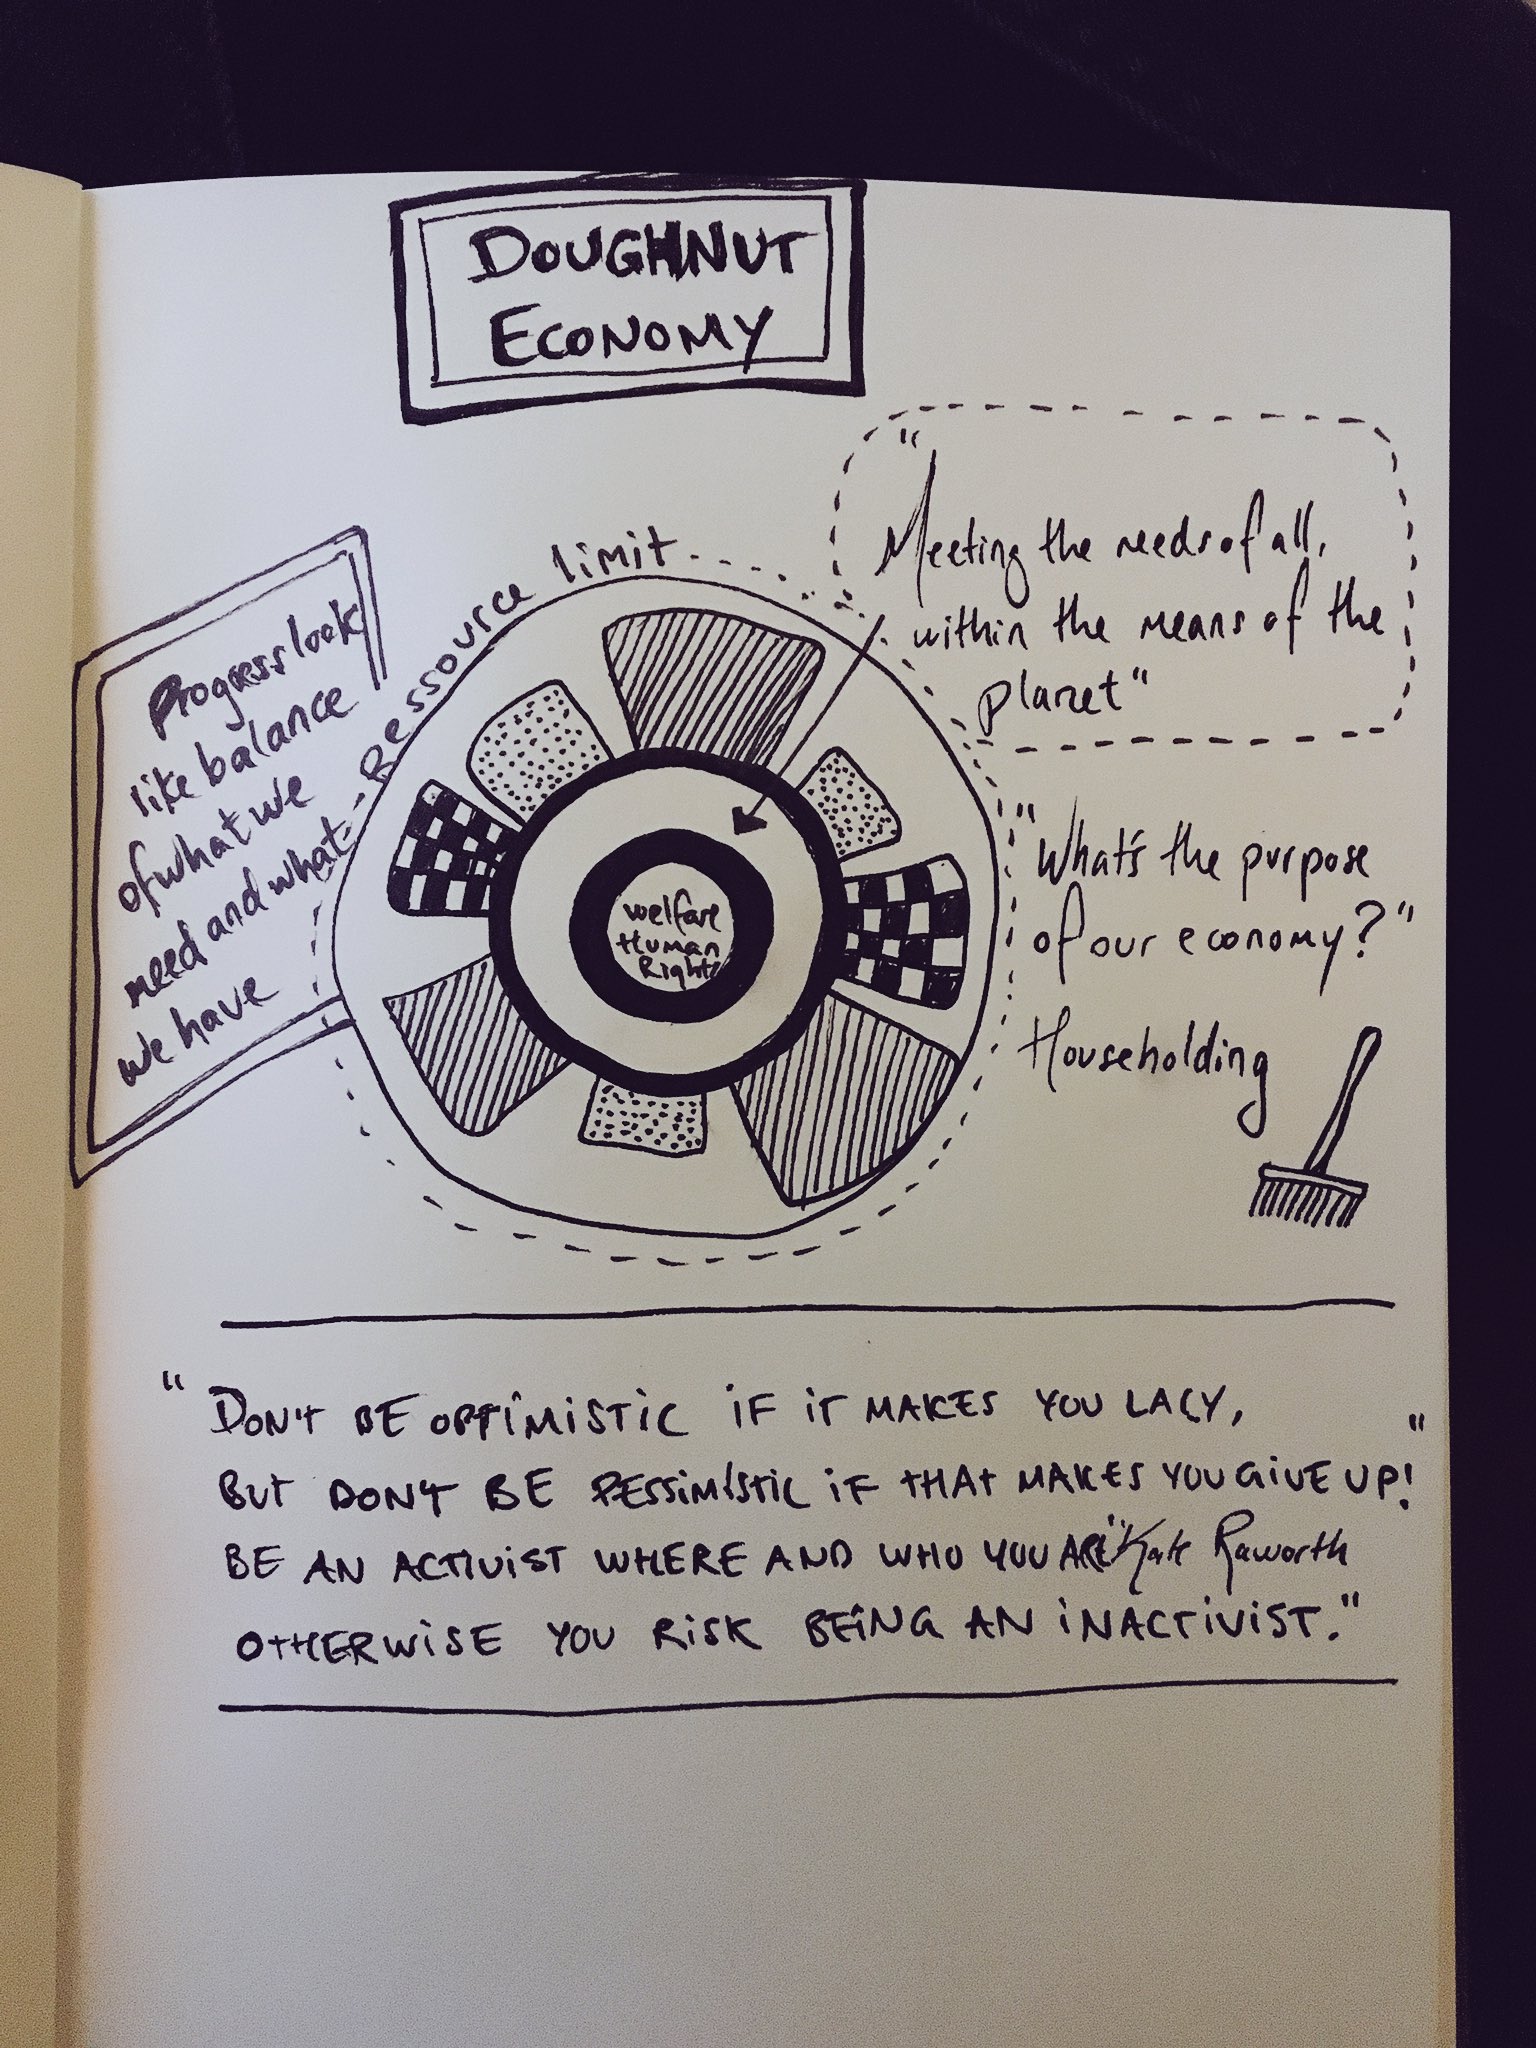 DOUGHNUT
ECONOMY
"
Meeting the needs of all,
within the means of the
planet"
Ressource limit
Progress look
like balance
of what we
need and what
we have
welfare
Human
Rights
"What's the purpose
of our economy?"
Householding
"DON'T BE OPTIMISTIC IF IT MAKES YOU LACY,
BUT DON'T BE PESSIMISTIC IF THAT MAKES YOU GIVE UP!"
BE AN ACTIVIST WHERE AND WHO YOU ARE" Kate Raworth
OTHERWISE YOU RISK BEING AN INACTIVIST."